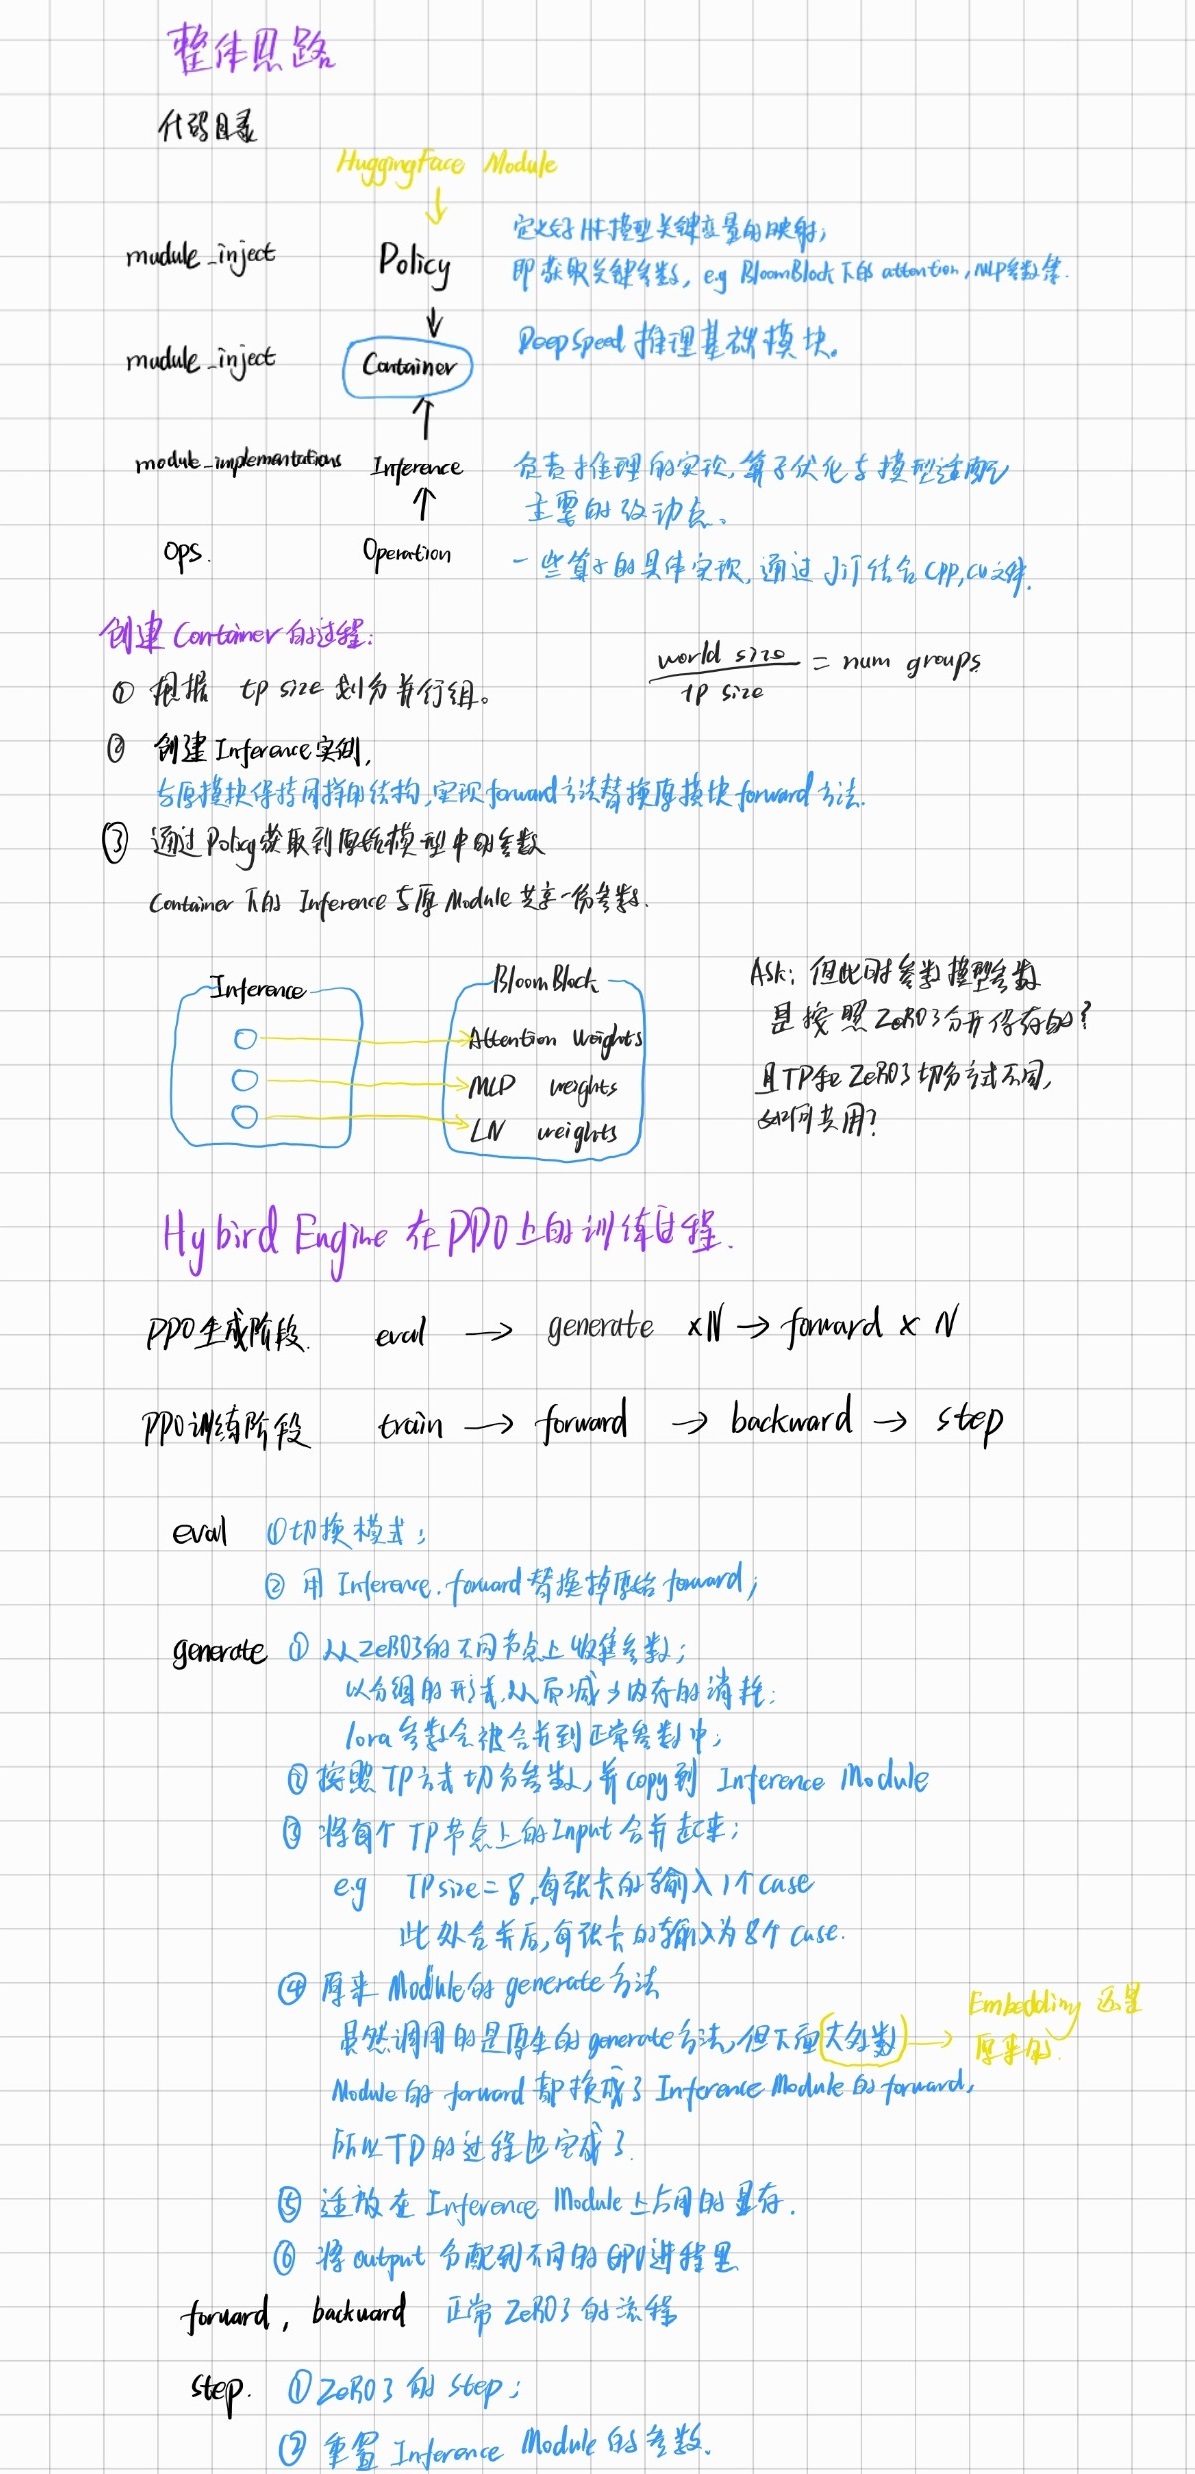 整体思路
代码目录
HuggingFace Module
mudule_inject Policy 定义好HF模型关键变量的映射;
即获取关键参数, e.g BloomBlock下的attention, MLP参数等.
mudule_inject Container DeepSpeed 推理基础模块。
module_implementations Inference 负责推理的实现,算子优化与模型适配
主要的改动点。
ops. Operation 一些算子的具体实现,通过JIT结合CPP,CU文件.
创建Container的过程:
world size / tp size = num groups
① 根据 tp size 划分并行组。
② 创建Inference实例,
与原模块保持同样的结构,实现forward方法替换原模块forward方法.
③ 通过Policy获取到原始模型中的参数
Container 下的 Inference 与原Module共享一份参数.
Inference BloomBlock
Attention Weights
MLP weights
LN weights
Ask: 但此时参数模型参数
是按照ZeRO3分开保存的?
且TP和ZeRO3切分方式不同,
如何共用?
Hybird Engine 在PPO上的训练过程.
PPO生成阶段. eval → generate ×N → forward × N
PPO训练阶段 train → forward → backward → step
eval ①切换模式;
② 用 Inference.forward替换掉原始forward;
generate ① 从ZeRO3的不同节点上收集参数;
以分组的形式,从而减少内存的消耗;
lora参数会被合并到正常参数中;
② 按照TP方式切分参数,并copy到 Inference Module
③ 将每个TP节点上的Input合并起来;
e.g TPsize=8,每张卡的输入1个case
此处合并后,每张卡的输入为8个case.
④ 原来 Module的generate方法
虽然调用的是原生的generate方法,但下面大多数 → Embedding 还是
原来的.
Module的 forward 都换成了Inference Module的forward,
所以TP的过程也完成了.
⑤ 适放在 Inference Module上占用的显存.
⑥ 将output 分配到不同的GPU进程里
forward, backward 正常 ZeRO3 的流程
step. ①ZeRO3 的 step;
② 重置 Inference Module的参数.